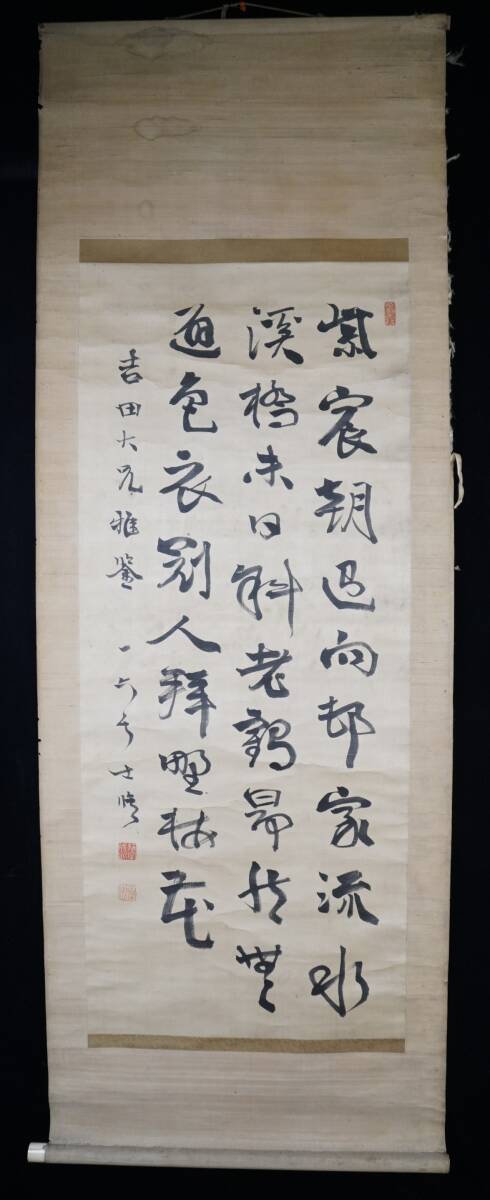 紫宸朝退向邨家流水
溪橋未日斜老鶴昂然無
色衣冠人拜野梅花
吉田大兄雅鑒 一六居士脩